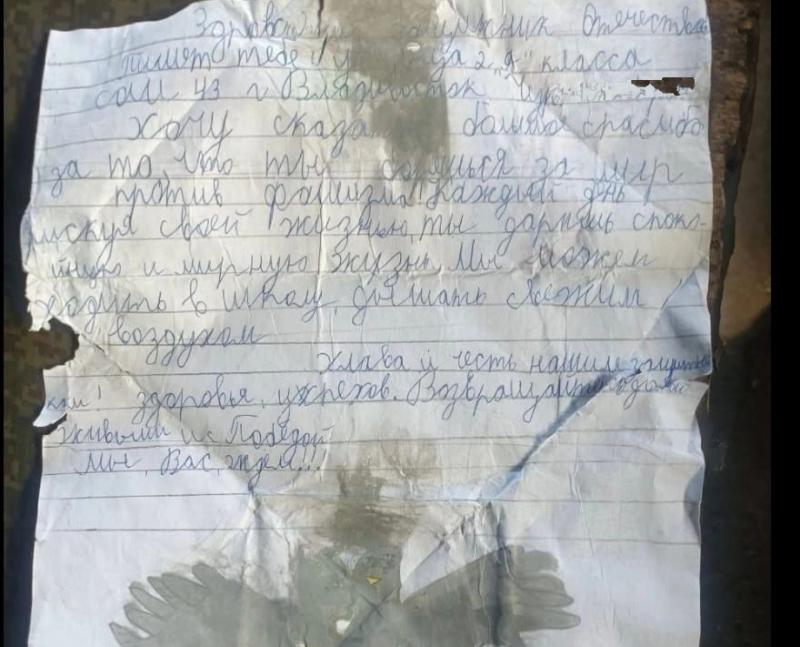 Здравст защитник Отечества
пишет тебе уч ца 2 „Я" класса
СОШ 43 г Владивосток
Хочу сказа большое спасибо
за то, что ты борешься за мир
против фашизма. Каждый день
рискуя своей жизнью, ты даришь споко-
йную и мирную жизнь. Мы можем
ходить в школу, дышать свежим
воздухом
Хлава и честь нашим защитни
кам! здоровья, успехов. Возвращайтесь домой
живыми и с Победой
Мы, Вас, ждем!!!